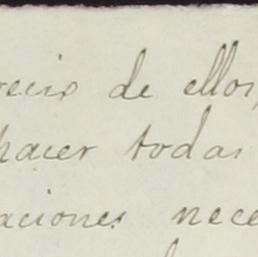 recio de ellos,
hacer todas
aciones nece